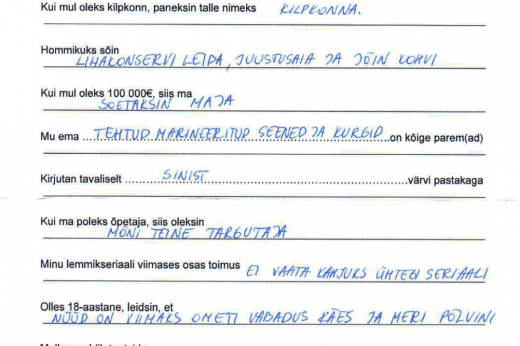 Kui mul oleks kilpkonn, paneksin talle nimeks KILPKONNA.
Hommikuks sõin
LIHAKONSERVI LEIBA, JUUSTUSAIA JA JÕIN KOHVI
Kui mul oleks 100 000€, siis ma
SOETAKSIN MAJA
Mu ema TEHTUD MARINEERITUD SEENED JA KURGID on kõige parem(ad)
Kirjutan tavaliselt SINIST värvi pastakaga
Kui ma poleks õpetaja, siis oleksin
MÕNI TEINE TARGUTAJA
Minu lemmikseriaali viimases osas toimus EI VAATA KAHJUKS ÜHTEGI SERIAALI
Olles 18-aastane, leidsin, et
NÜÜD ON VIIMAKS OMETI VABADUS KÄES JA MERI PÕLVINI